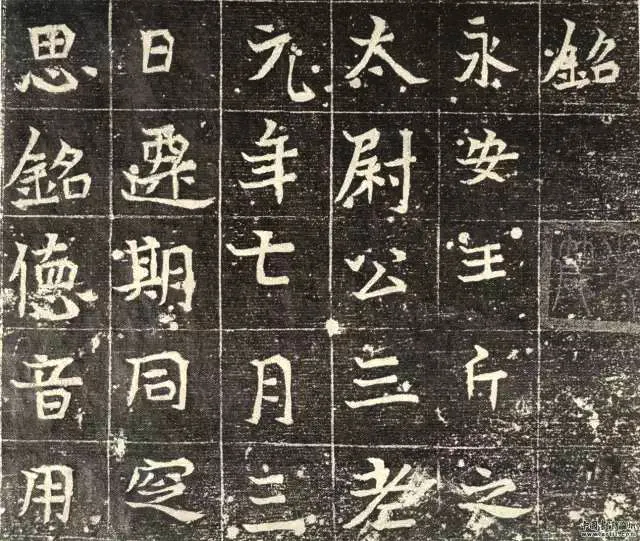 銘
永安王斤之
太尉公三老
元年七月三
日遷期同窆
思銘德音用